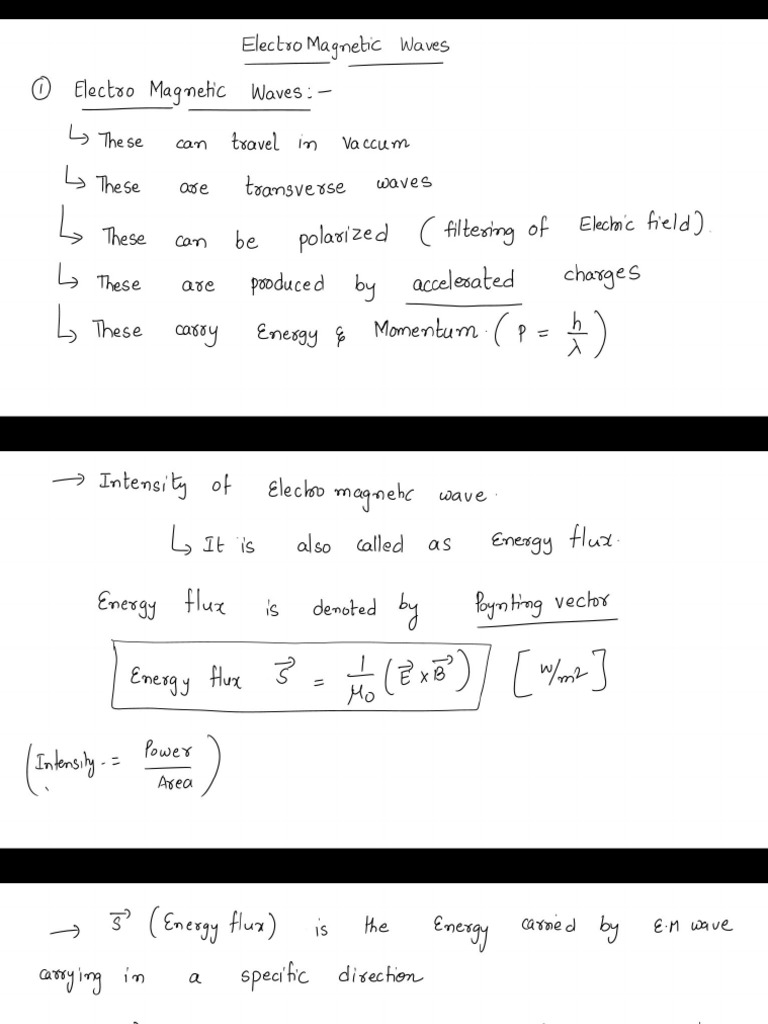 ElectroMagnetic Waves
① Electro Magnetic Waves:-
↳ These can travel in Vaccum
↳ These are transverse waves
↳ These can be polarized (filtering of Electric field).
↳ These are produced by accelerated charges
↳ These carry Energy & Momentum. (P = h/λ)
→ Intensity of Electro magnetic wave.
↳ It is also called as Energy flux.
Energy flux is denoted by Poynting vector
Energy flux S⃗ = 1/μ0 (E⃗ × B⃗) [W/m2]
(Intensity = Power/Area)
→ S⃗ (Energy flux) is the Energy carried by E.M wave
carrying in a specific direction